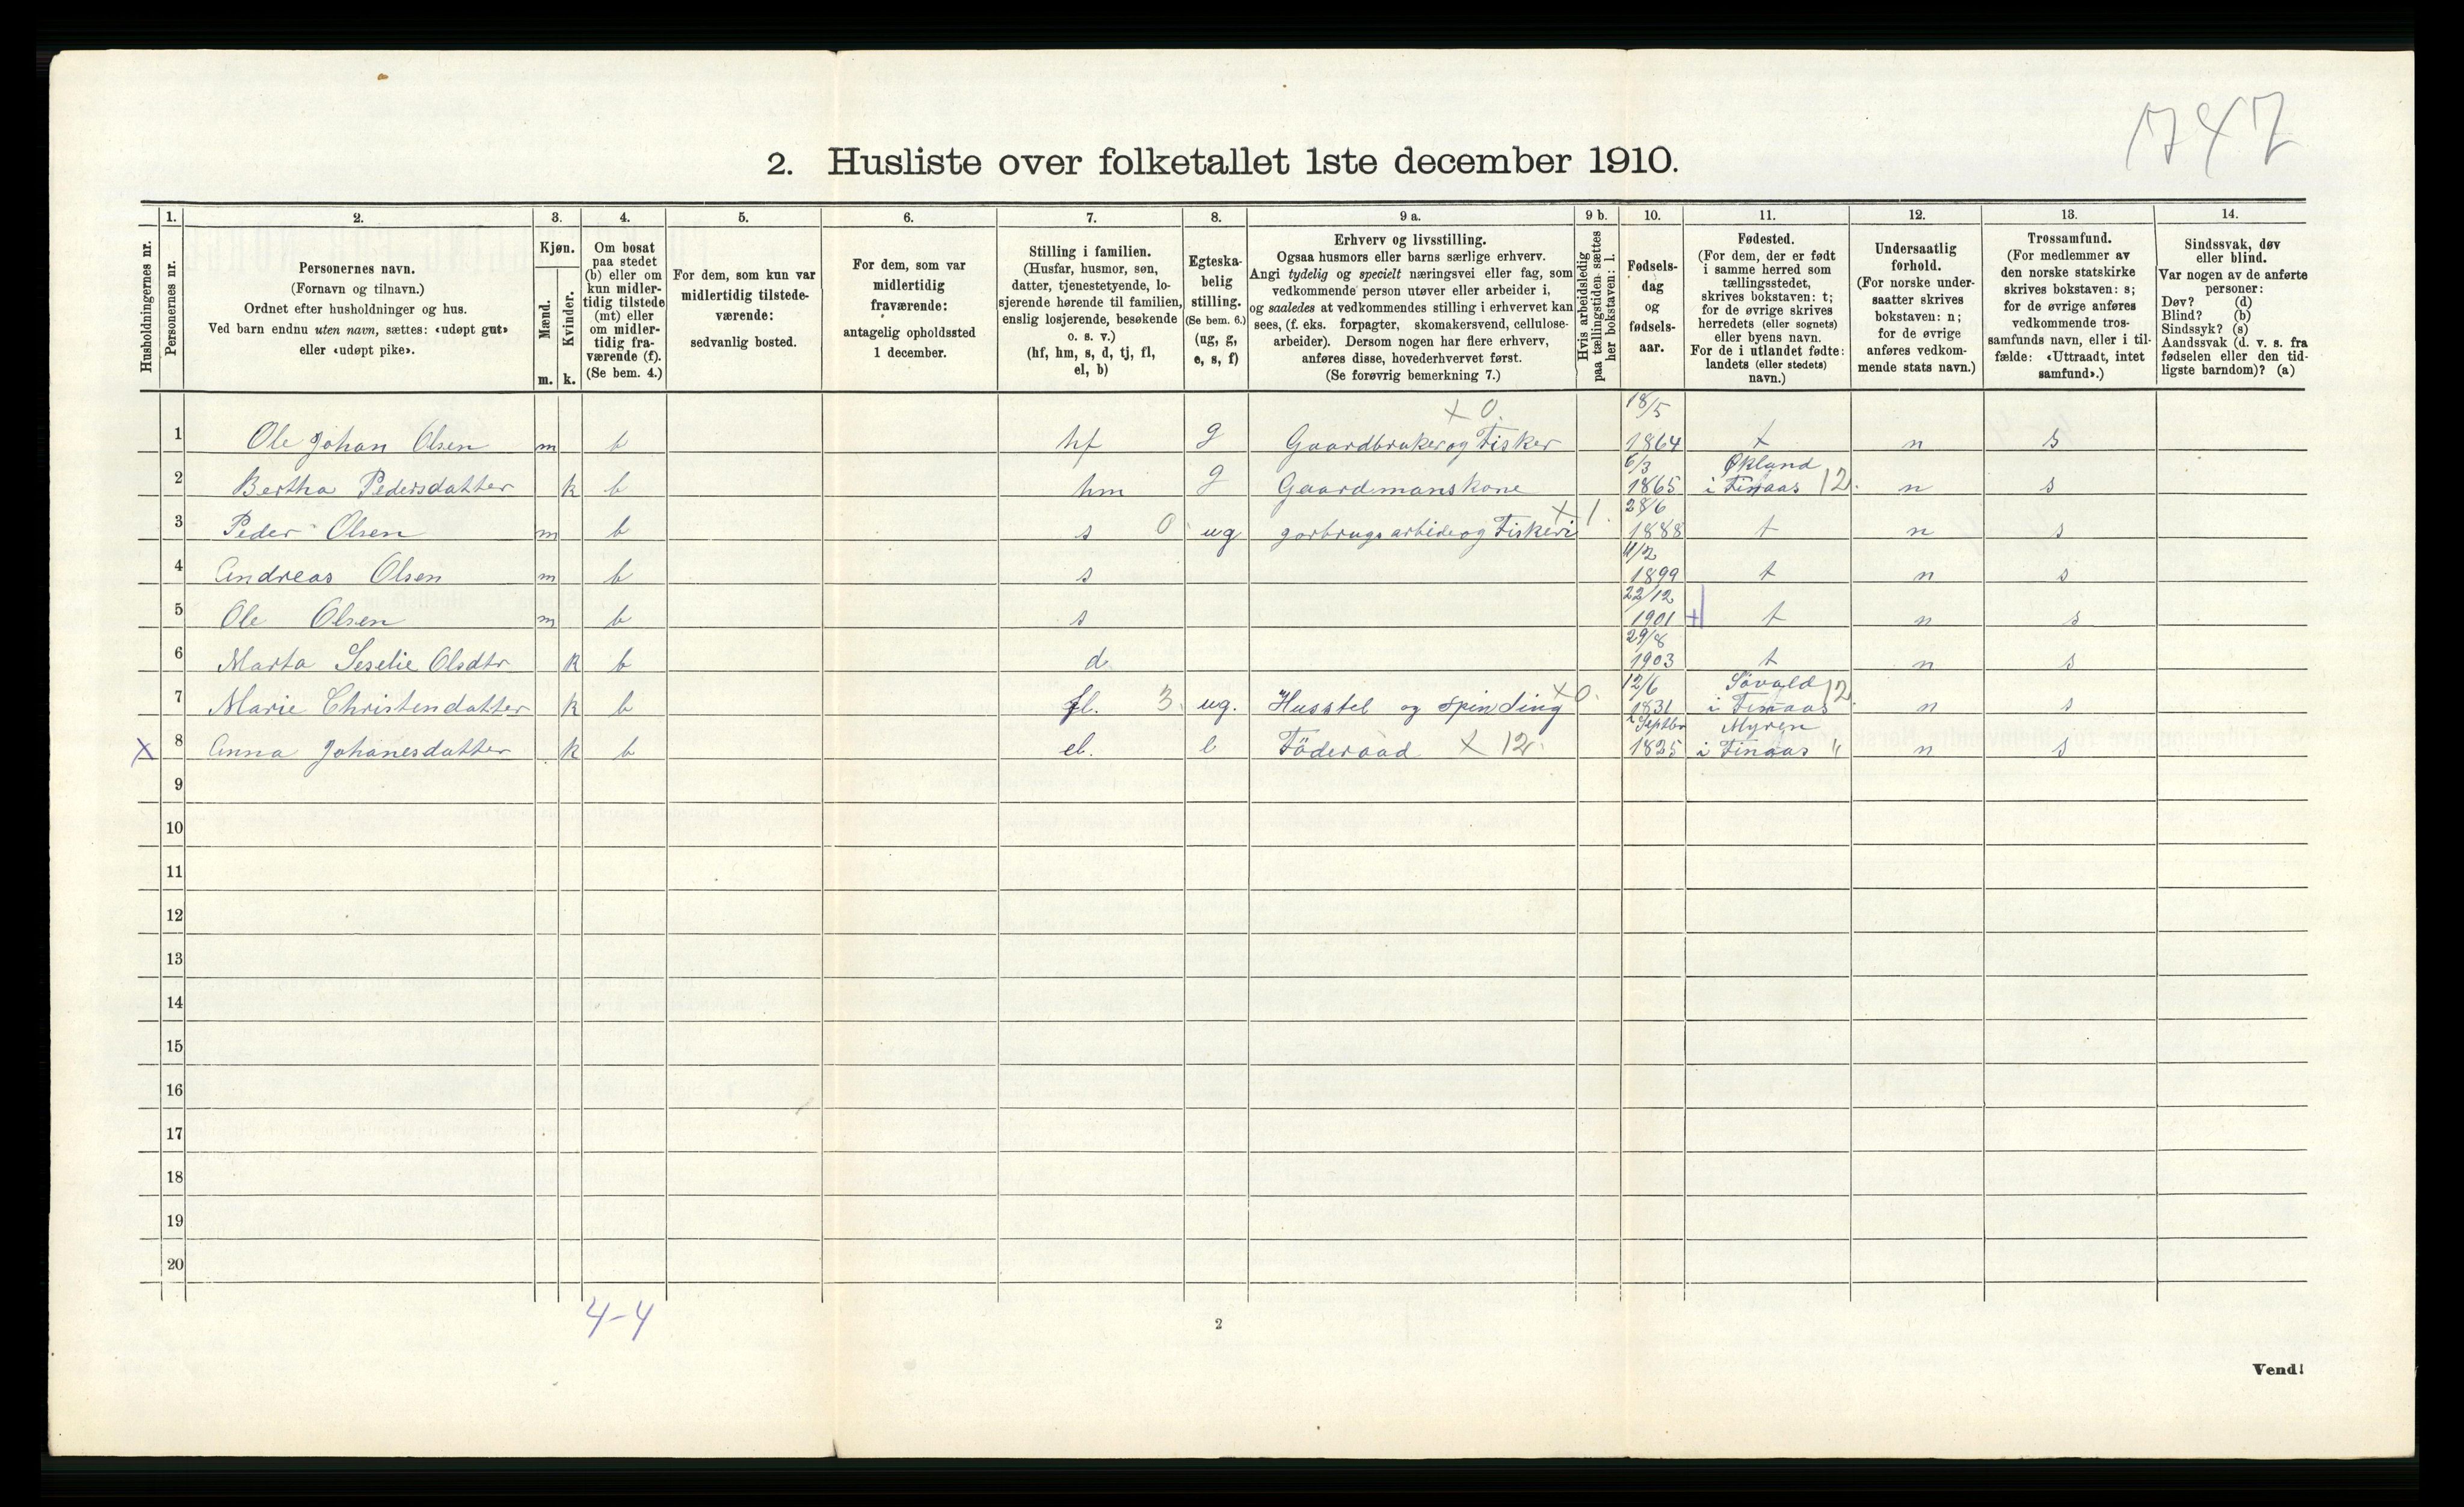 1747
2. Husliste over folketallet 1ste december 1910.
Husholdningernes nr.
1. 2. 3. 4. 5. 6. 7. 8. 9 a. 9 b. 10. 11. 12. 13. 14.
Personernes nr.
Personernes navn.
(Fornavn og tilnavn.)
Ordnet efter husholdninger og hus.
Ved barn endnu uten navn, sættes: «udøpt gut»
eller «udøpt pike».
Kjøn.
Mænd.
Kvinder.
m. k.
Om bosat
paa stedet
(b) eller om
kun midler-
tidig tilstede
(mt) eller
om midler-
tidig fra-
værende (f).
(Se bem. 4.)
For dem, som kun var
midlertidig tilstede-
værende:
sedvanlig bosted.
For dem, som var
midlertidig
fraværende:
antagelig opholdssted
1 december.
Stilling i familien.
(Husfar, husmor, søn,
datter, tjenestetyende, lo-
sjerende hørende til familien,
enslig losjerende, besøkende
o. s. v.)
(hf, hm, s, d, tj, fl,
el, b)
Egteska-
belig
stilling.
(Se bem. 6.)
(ug, g,
e, s, f)
Erhverv og livsstilling.
Ogsaa husmors eller barns særlige erhverv.
Angi tydelig og specielt næringsvei eller fag, som
vedkommende person utøver eller arbeider i,
og saaledes at vedkommendes stilling i erhvervet kan
sees, (f. eks. forpagter, skomakersvend, cellulose-
arbeider). Dersom nogen har flere erhverv,
anføres disse, hovederhvervet først.
(Se forøvrig bemerkning 7.)
Hvis arbeidsledig
paa tællingstiden sættes
her bokstaven: l.
Fødsels-
dag
og
fødsels-
aar.
Fødested.
(For dem, der er født
i samme herred som
tællingsstedet,
skrives bokstaven: t;
for de øvrige skrives
herredets (eller sognets)
eller byens navn.
For de i utlandet fødte:
landets (eller stedets)
navn.)
Undersaatlig
forhold.
(For norske under-
saatter skrives
bokstaven: n;
for de øvrige
anføres vedkom-
mende stats navn.)
Trossamfund.
(For medlemmer av
den norske statskirke
skrives bokstaven: s;
for de øvrige anføres
vedkommende tros-
samfunds navn, eller i til-
fælde: «Uttraadt, intet
samfund».)
Sindssvak, døv
eller blind.
Var nogen av de anførte
personer:
Døv? (d)
Blind? (b)
Sindssyk? (s)
Aandssvak (d. v. s. fra
fødselen eller den tid-
ligste barndom)? (a)
x 0. 18/5
1 Ole Johan Olsen m b hf g Gaardbruker og Fisker 1864 t n s
6/3 Økland
2 Bertha Pedersdatter k b hm g Gaardemanskone 1865 i Finaas 12. n s
x 1. 28/6
3 Peder Olsen m b s 0 ug gorbrugsarbide og Fiskeri 1888 t n s
11/2
4 Andreas Olsen m b s 1899 t n s
22/12
5 Ole Olsen m b s 1901 + t n s
29/8
6 Marta Seselie Olsdtr k b d 1903 t n s
x 0. 12/6 Søvold 12
7 Marie Christendatter k b fl. 3 ug. Husstel og spinding 1831 i Finaas n s
i Septbr Myren
x 8 Anna Johanesdatter k b el. e Föderaad x 12. 1825 i Finaas " n s
9
10
11
12
13
14
15
16
17
18
19
20
4-4
2
Vend!